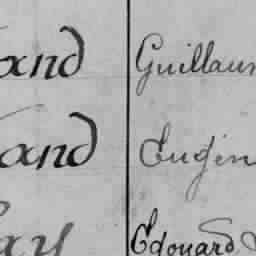 and Guillaum
and Eugèn
ay Edouard